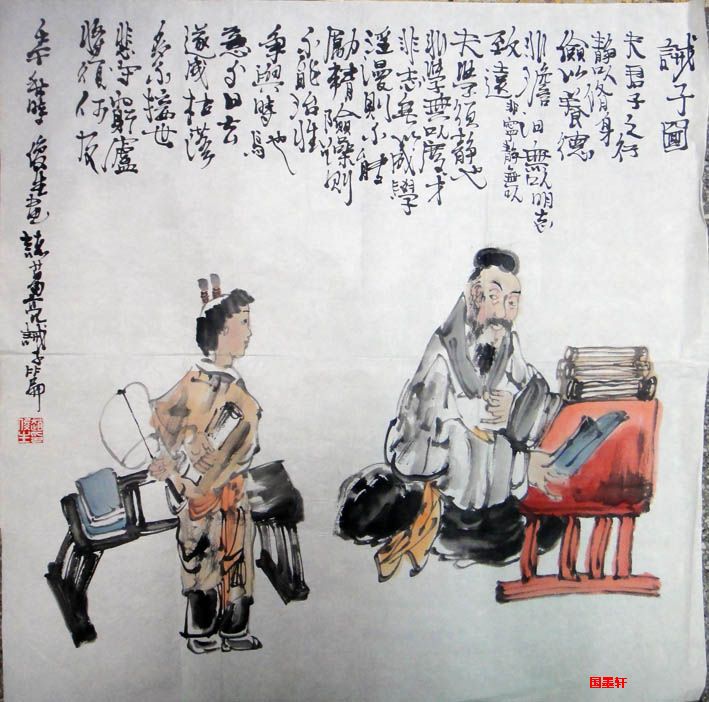 誡子圖
夫君子之行
静以脩身
儉以養德
非澹泊無以明志
致遠非寧静無以
夫學須静也
非學無以廣才
非志無以成學
淫漫則不能
勵精險躁則
不能治性
年與時馳
意与日去
遂成枯落
多不接世
悲守窮廬
將復何及
俊生畫諸葛亮誡子
国墨轩